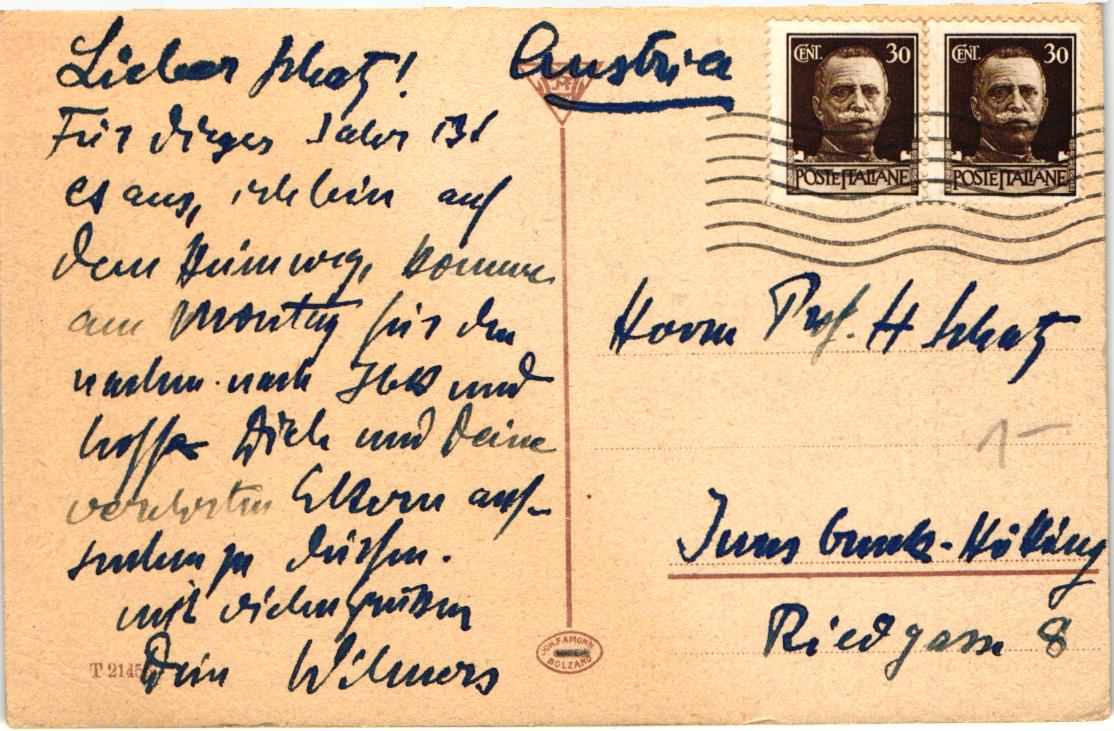 Lieber Schatz!
Für dieses Jahr ist
es aus, ich bin auf
dem Heimweg, komme
am Montag für den
nachm. nach Ibk und
hoffe Dich und Deine
verehrten Eltern auf-
suchen zu dürfen.
mit vielen Grüssen
Dein Wilmers
T 2145
Austria
CENT. 30
POSTE ITALIANE
CENT. 30
POSTE ITALIANE
Herrn Prof. H Schatz
1-
Innsbruck-Hötting
Riedgasse 8
JOH. F. AMONN
BOLZANO